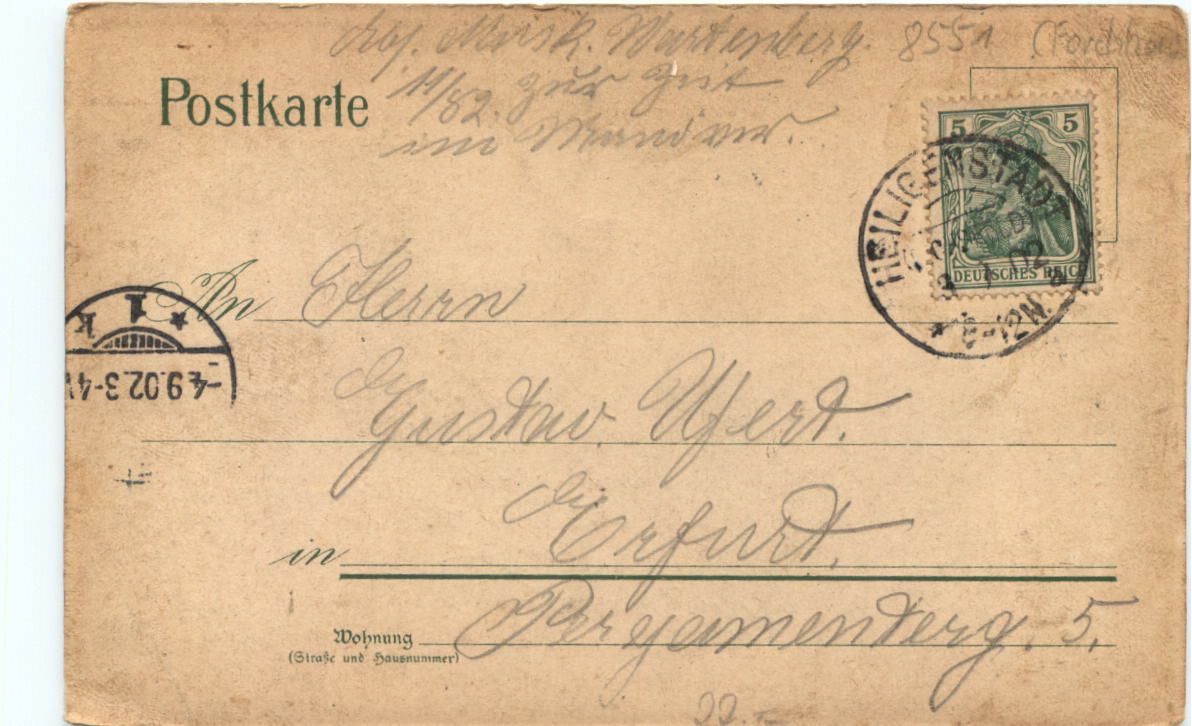 Abs. Musk. Wartenberg. 8551
Postkarte
11/82. zur Zeit
im Manöver.
5 5
DEUTSCHES REICH
HEILIGENSTADT
(EICHSFELD)
02
8-12N.
An Herrn
1
k
-4.9.02.3-4
Gustav. Ufert.
in Erfurt.
Wohnung Pergamenterg. 5.
(Straße und Hausnummer)
22.-